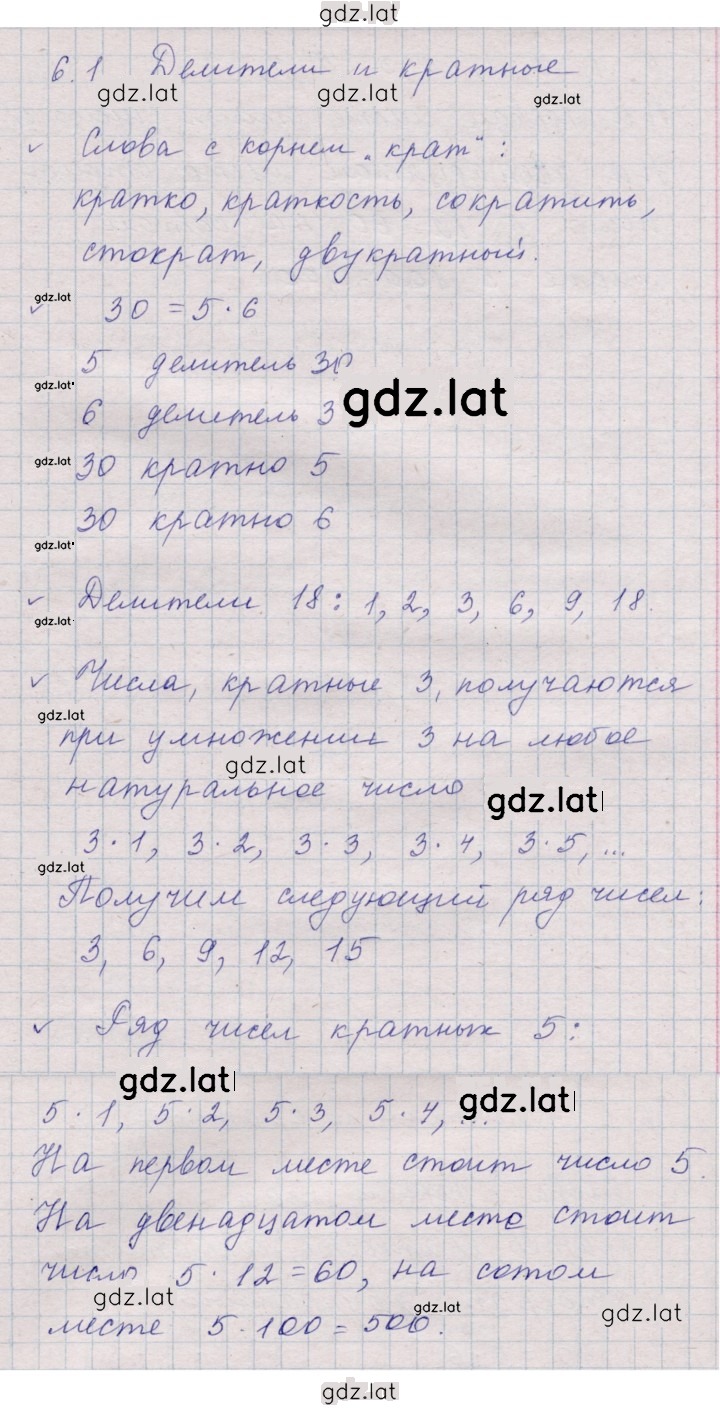 gdz.lat
6.1 Делители и кратные
gdz.lat gdz.lat gdz.lat
✓ Слова с корнем „крат“:
кратко, краткость, сократить,
стократ, двукратный.
gdz.lat
✓ 30 = 5 · 6
5 делитель 30
gdz.lat gdz.lat
6 делитель 3
gdz.lat
30 кратно 5
30 кратно 6
gdz.lat
✓ Делители 18: 1, 2, 3, 6, 9, 18.
gdz.lat
✓ Числа, кратные 3, получаются
gdz.lat
при умножении 3 на любое
gdz.lat
натуральное число
gdz.lat
3 · 1, 3 · 2, 3 · 3, 3 · 4, 3 · 5, ...
gdz.lat
Получим следующий ряд чисел:
3, 6, 9, 12, 15
✓ Ряд чисел кратных 5:
gdz.lat gdz.lat
5 · 1, 5 · 2, 5 · 3, 5 · 4, ...
На первом месте стоит число 5.
На двенадцатом месте стоит
число 5 · 12 = 60, на сотом
gdz.lat gdz.lat gdz.lat
месте 5 · 100 = 500.
gdz.lat